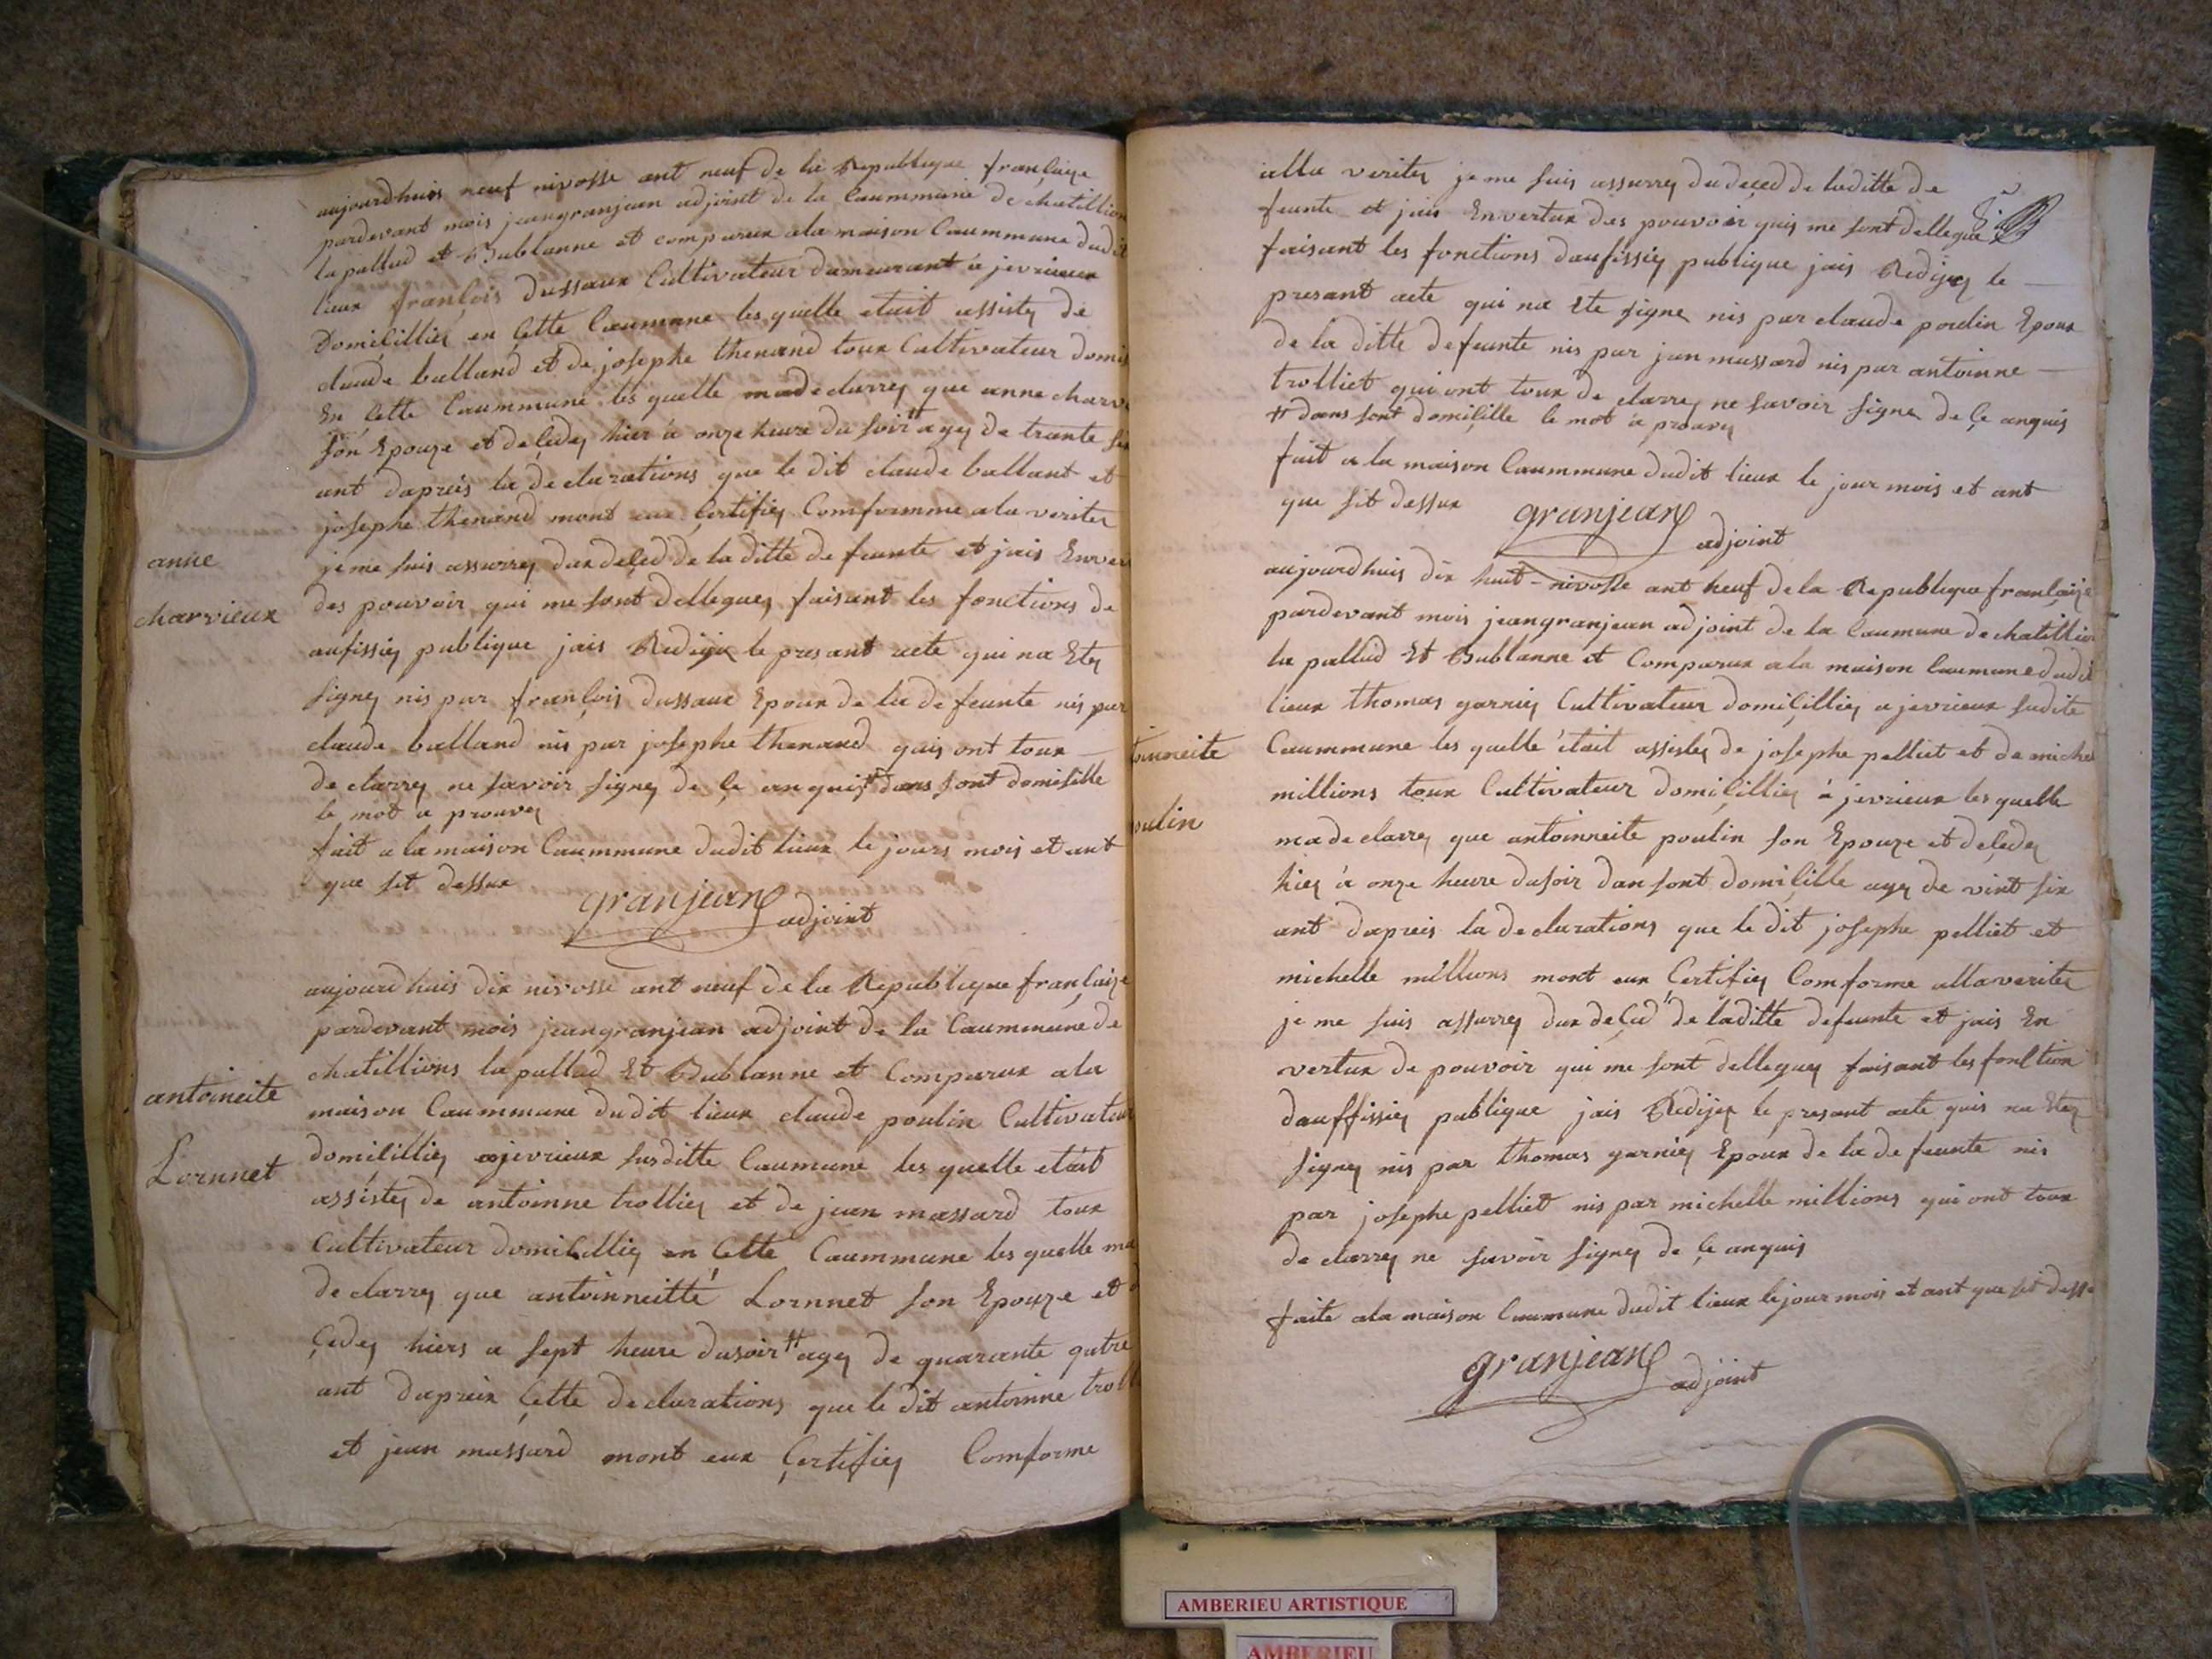 aujourdhuis neuf nivosse ant neuf de la Republique françaize
pardevant mois jeangranjean adjoint de la Caummune de chatillion
la pallud et Bublanne et comparux ala maison Caummune dudit
lieux françois dussaux Cultivateur dameurant à jevrieux
Domicilliez en Cette Caumune lesquelle etait assistez de
claude balland et de josephe thenand toux Cultivateur domi
En Cette Caummune lesquelle madeclarrez que anne charv
son Epouze et deçedez hier à onze heure du soir # agez de trante
ant dapreis la declarations que le dit claude ballant et
josephe thenand mont eux Çertifiez Comformme ala veritez
je me suis assurrez dux deçed de la ditte defeunte et jais Enver
des pouvoir qui me sont delleguez faisant les fonctions de
aufissiez publique jais Redijez le presant acte qui na Etez
signez nis par françois dussaux Epoux de la defeunte nis par
claude balland nis par josephe thenand quis ont toux
declarrez ne savoir signez de çe anquis # dans sont domisille
le mot a prouvez
fait a la maison Caummune dudit lieux le jours mois et ant
que sit dessux
granjean adjoint
anne
charvieux
aujourdhuis dix nivosse ant neuf de la Republique françaize
pardevant mois jeangranjean adjoint de la Caummune de
chatillions la pallud Et Bublanne et Comparux ala
maison Caummune dudit lieux claude poulin Cultivateur
domicilliez ajevrieux susditte Caumune lesquelle etait
assistez de antoinne trolliez et de jean massard toux
Cultivateur domicilliez en Çette Caummune lesquelle ma
declarrez que antoinneitte Lornnet son Epouze et d
çedez hiers a sept heure dusoir # agez de quarante qutre
ant dapreix Çette declarations que le dit antoinne troll
et jean massard mont eux Çertifiez Comforme
antoineite
Lornnet
alla veritez je me suis assurrez du deçed de laditte de
feunte et jais Envertux des pouvoir quis me sont delleguez
faisant les fonctions daufissiez publique jais Redijez le
presant acte qui na Ete signe nis par claude poulin Epoux
de la ditte defeunte nis par jan massard nis par antoinne
trolliet qui ont toux declarrez ne savoir signe de çe anquis
# dans sont domiçille le mot a prouvez
fait a la maison Caummune dudit lieux le jour mois et ant
que sit dessux
granjean adjoint
aujourdhuis dix huit nivosse ant neuf de la Republique françaize
pardevant mois jeangranjean adjoint de la Caumune de chatillion
la pallud Et Bublanne et Comparux ala maison Caumune dudit
lieux thomas garniez Cultivateur domiçilliez a jevrieux sudite
Caummune lesquelle était assistez de josephe pelliet et de miche
millions toux Cultivateur domiçilliez à jevrieux lesquelle
madeclarrez que antoinneite poulin son Epouze et deçedez
hiez à onze heure dusoir dan sont domiçille agez de vint six
ant dapreis la declarations que le dit josephe pelliet et
michelle millions mont eux Certifiez Comforme allaveritez
je me suis assurrez dux deçed de laditte defeunte et jais En
vertux de pouvoir qui me sont delleguez faisant les fonction
dauffissiez publique jais Redijez le presant acte quis na Etez
signez nis par thomas garniez Epoux de la defeunte nis
par josephe pelliet nis par michelle millions qui ont toux
declarrez ne savoir signez de çe anquis
faite ala maison Caumune dudit lieux lejour mois et ant que sit desse
granjean adjoint
oinneite
oulin
AMBERIEU ARTISTIQUE
AMBERIEU